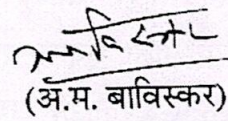 (अ.म. बाविस्कर)